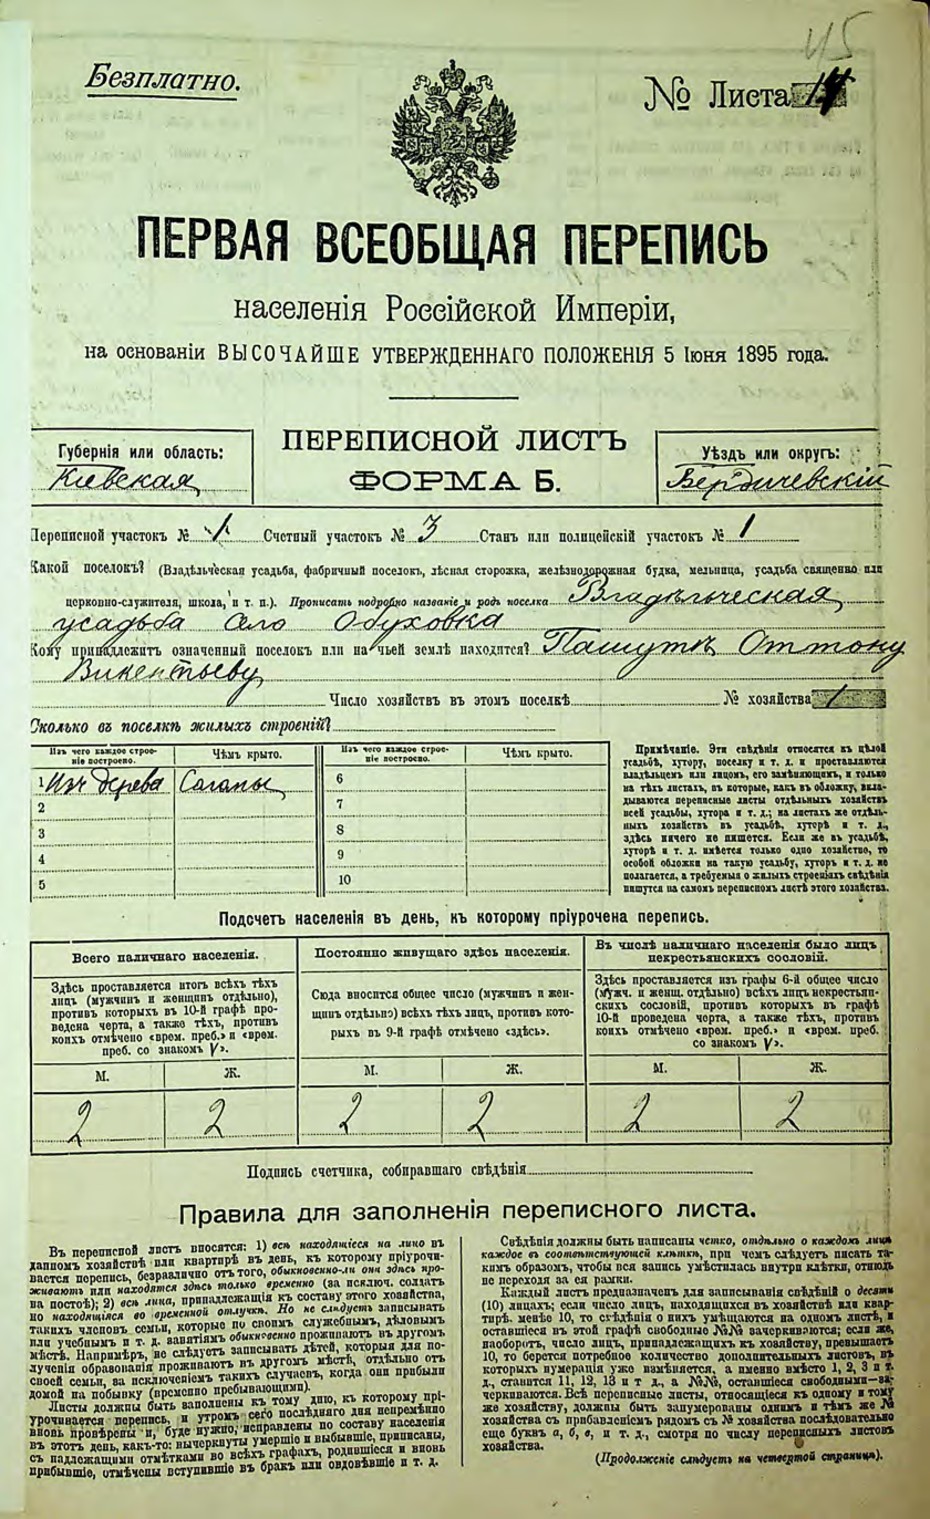 45
Безплатно.
№ Листа
ПЕРВАЯ ВСЕОБЩАЯ ПЕРЕПИСЬ
населенія Россійской Имперіи,
на основаніи ВЫСОЧАЙШЕ УТВЕРЖДЕННАГО ПОЛОЖЕНІЯ 5 Іюня 1895 года.
ПЕРЕПИСНОЙ ЛИСТЪ
ФОРМА Б.
Губернія или область:
Кіевская
Уѣздъ или округъ:
Бердичевскій
Переписной участокъ № Счетный участокъ № 3 Станъ или полицейскій участокъ № 1
Какой поселокъ? (Владѣльческая усадьба, фабричный поселокъ, лѣсная сторожка, желѣзнодорожная будка, мельница, усадьба священно или
церковно-служителя, школа, и т. п.). Прописать подробно названіе и родъ поселка Владѣльческая
усадьба село Обуховка
Кому принадлежитъ означенный поселокъ или на чьей землѣ находится? Пашутѣ Оттону
Викентьеву
Число хозяйствъ въ этомъ поселкѣ № хозяйства 1
Сколько въ поселкѣ жилыхъ строеній?
Изъ чего каждое строе-
ніе построено.
Чѣмъ крыто.
Изъ чего каждое строе-
ніе построено.
Чѣмъ крыто.
1 Изъ дерева
6
2
7
3
8
4
9
5
10
Примѣчаніе. Эти свѣдѣнія относятся къ цѣлой
усадьбѣ, хутору, поселку и т. д. и проставляются
владѣльцемъ или лицомъ, его замѣняющимъ, и только
на тѣхъ листахъ, въ которые, какъ въ обложку, вкла-
дываются переписные листы отдѣльныхъ хозяйствъ
всей усадьбы, хутора и т. д.; на листахъ же отдѣль-
ныхъ хозяйствъ въ усадьбѣ, хуторѣ и т. д.,
здѣсь ничего не пишется. Если же въ усадьбѣ,
хуторѣ и т. д. имѣется только одно хозяйство, то
особой обложки на такую усадьбу, хуторъ и т. д. не
полагается, а требуемыя о жилыхъ строеніяхъ свѣдѣнія
пишутся на самомъ переписномъ листѣ этого хозяйства.
Подсчетъ населенія въ день, къ которому пріурочена перепись.
Всего наличнаго населенія.
Здѣсь проставляется итогъ всѣхъ тѣхъ
лицъ (мужчинъ и женщинъ отдѣльно),
противъ которыхъ въ 10-й графѣ про-
ведена черта, а также тѣхъ, противъ
коихъ отмѣчено «врем. преб.» и «врем.
преб. со знакомъ V».
Постоянно живущаго здѣсь населенія.
Сюда вносится общее число (мужчинъ и жен-
щинъ отдѣльно) всѣхъ тѣхъ лицъ, противъ кото-
рыхъ въ 9-й графѣ отмѣчено «здѣсь».
Въ числѣ наличнаго населенія было лицъ
некрестьянскихъ сословій.
Здѣсь проставляется изъ графы 6-й общее число
(мужч. и женщ. отдѣльно) всѣхъ лицъ некрестьян-
скихъ сословій, противъ которыхъ въ графѣ
10-й проведена черта, а также тѣхъ, противъ
коихъ отмѣчено «врем. преб.» и «врем. преб.
со знакомъ V».
М. Ж. М. Ж. М. Ж.
2 2 2 2 2 2
Подпись счетчика, собиравшаго свѣдѣнія
Правила для заполненія переписного листа.
Въ переписной листъ вносятся: 1) всѣ находящіеся на лицо въ
данномъ хозяйствѣ или квартирѣ въ день, къ которому пріурочи-
вается перепись, безразлично отъ того, обыкновенно-ли они здѣсь про-
живаютъ или находятся здѣсь только временно (за исключ. солдатъ
на постоѣ); 2) всѣ лица, принадлежащія къ составу этого хозяйства,
но находящіяся во временной отлучкѣ. Но не слѣдуетъ записывать
такихъ членовъ семьи, которые по своимъ служебнымъ, дѣловымъ
или учебнымъ и т. д. занятіямъ обыкновенно проживаютъ въ другомъ
мѣстѣ. Напримѣръ, не слѣдуетъ записывать дѣтей, которыя для по-
лученія образованія проживаютъ въ другомъ мѣстѣ, отдѣльно отъ
своей семьи, за исключеніемъ такихъ случаевъ, когда они прибыли
домой на побывку (временно пребывающими).
Листы должны быть заполнены къ тому дню, къ которому прі-
урочивается перепись, и утромъ сего послѣдняго дня непремѣнно
вновь провѣрены и, буде нужно, исправлены по составу населенія
въ этотъ день, какъ-то: вычеркнуты умершіе и выбывшіе, приписаны,
съ надлежащими отмѣтками во всѣхъ графахъ, родившіеся и вновь
прибывшіе, отмѣчены вступившіе въ бракъ или овдовѣвшіе и т. д.
Свѣдѣнія должны быть написаны четко, отдѣльно о каждомъ лицѣ
каждое въ соотвѣтствующей клѣткѣ, при чемъ слѣдуетъ писать та-
кимъ образомъ, чтобы вся запись умѣстилась внутри клѣтки, отнюдь
не переходя за ея рамки.
Каждый листъ предназначенъ для записыванія свѣдѣній о десяти
(10) лицахъ; если число лицъ, находящихся въ хозяйствѣ или квар-
тирѣ, менѣе 10, то свѣдѣнія о нихъ умѣщаются на одномъ листѣ, и
оставшіеся въ этой графѣ свободные №№ зачеркиваются; если же,
наоборотъ, число лицъ, принадлежащихъ къ хозяйству, превышаетъ
10, то берется потребное количество дополнительныхъ листовъ, въ
которыхъ нумерація уже измѣняется, а именно вмѣсто 1, 2, 3 и т.
д., ставится 11, 12, 13 и т. д., а №№, оставшіеся свободными—за-
черкиваются. Всѣ переписные листы, относящіеся къ одному и тому
же хозяйству, должны быть занумерованы однимъ и тѣмъ же №
хозяйства съ прибавленіемъ рядомъ съ № хозяйства послѣдовательно
еще буквъ а, б, в, и т. д., смотря по числу переписныхъ листовъ
хозяйства.
(Продолженіе слѣдуетъ на четвертой страницѣ).